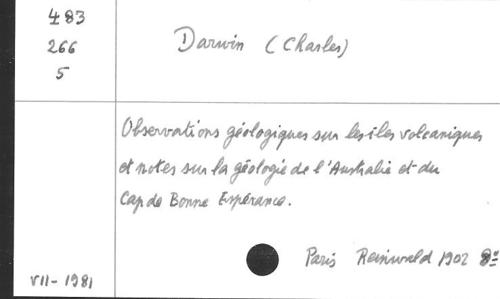 483
266
5
Darwin (Charles)
Observations géologiques sur les îles volcaniques
et notes sur la géologie de l'Australie et du
Cap de Bonne Espérance.
Paris Reinwald 1902 8°
VII - 1981